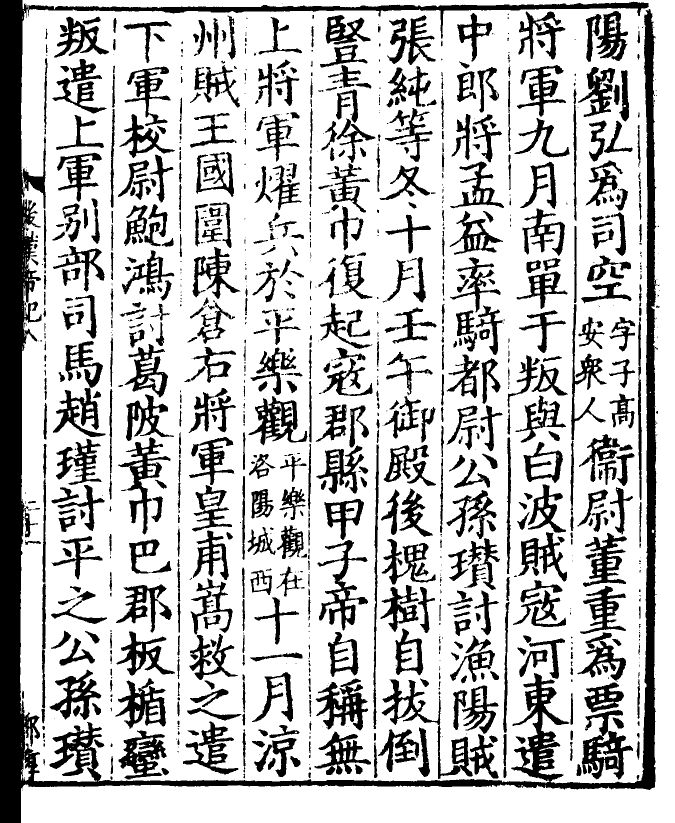 陽劉弘爲司空字子高安衆人衞尉董重爲票騎
將軍九月南單于叛與白波賊寇河東遣
中郎將孟益率騎都尉公孫瓉討漁陽賊
張純等冬十月壬午御殿後槐樹自拔倒
豎青徐黄巾復起寇郡縣甲子帝自稱無
上將軍燿兵於平樂觀平樂觀在洛陽城西十一月涼
州賊王國圍陳倉右將軍皇甫嵩救之遣
下軍校尉鮑鴻討葛陂黄巾巴郡板楯蠻
叛遣上軍别部司馬趙瑾討平之公孫瓉
後漢帝紀八